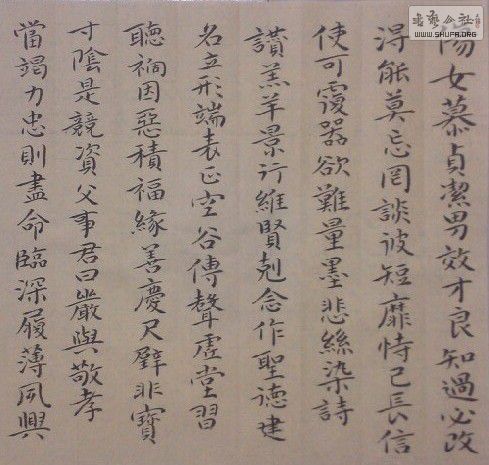 傷女慕貞潔男效才良知過必改
得能莫忘罔談彼短靡恃己長信
使可覆器欲難量墨悲絲染詩
讚羔羊景行維賢剋念作聖德建
名立形端表正空谷傳聲虛堂習
聽禍因惡積福緣善慶尺璧非寶
寸陰是競資父事君曰嚴與敬孝
當竭力忠則盡命臨深履薄夙興
書藝公社
WWW.SHUFA.ORG